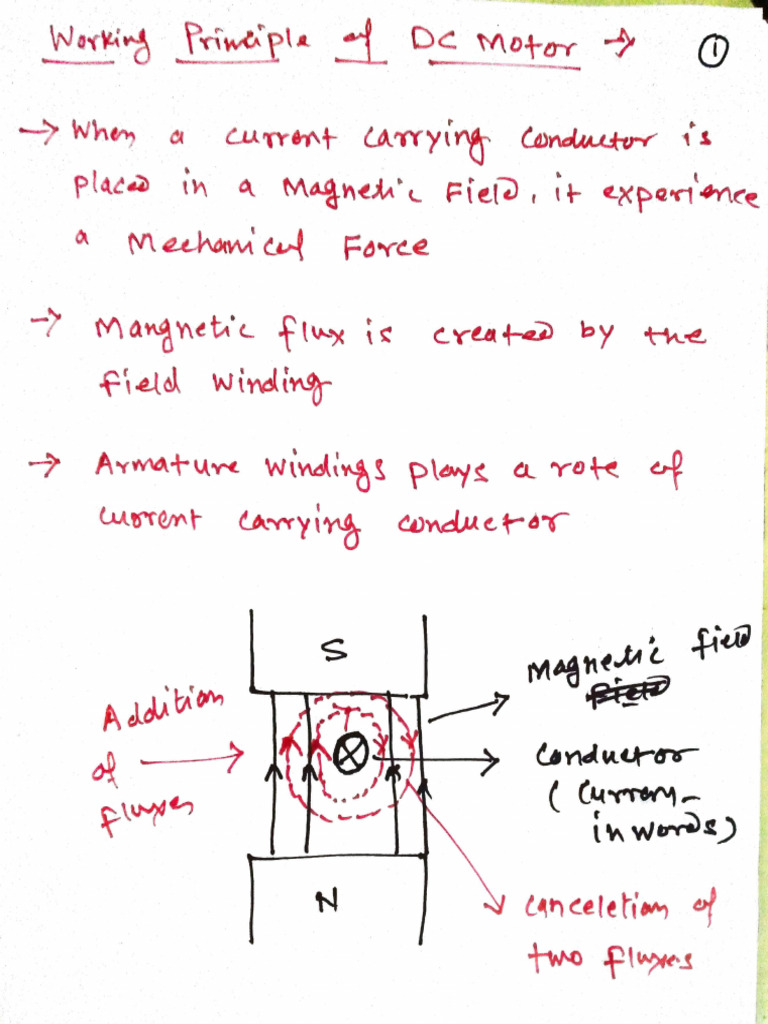 Working Principle of DC Motor →
①
→ When a current carrying conductor is
placed in a Magnetic Field, it experience
a Mechanical Force
→ Mangnetic flux is created by the
field winding
→ Armature windings plays a rote of
current carrying conductor
S
Magnetic field
Addition
of
fluxes
conductor
( Curren-
inwords)
N
canceletion of
two fluxes